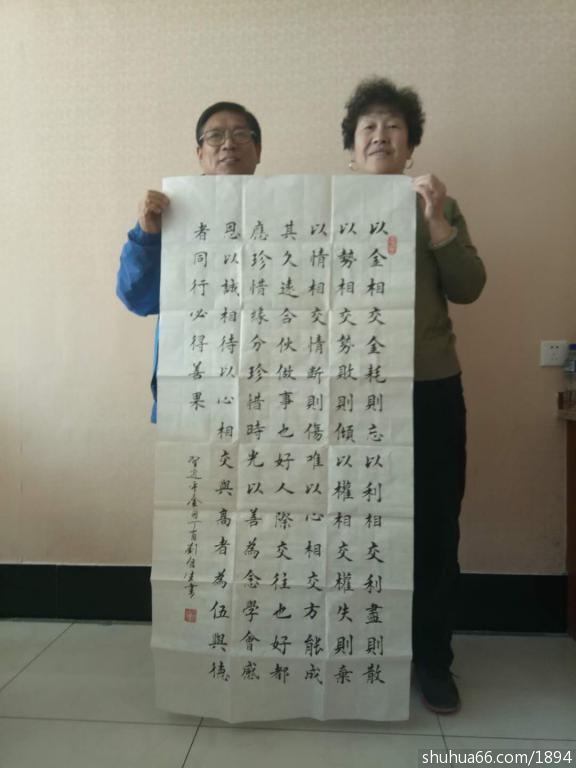 以金相交金耗則忘以利相交利盡則散
以勢相交勢敗則傾以權相交權失則棄
以情相交情斷則傷唯以心相交方能成
其久遠合伙做事也好人際交往也好都
應珍惜緣分珍惜時光以善為念學會感
恩以誠相待以心相交與高者為伍與德
者同行必得善果
劉
書
shuhua66.com/1894